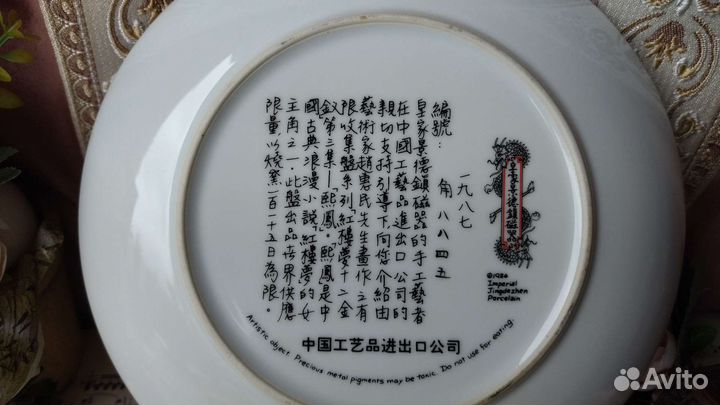 皇家景德鎮磁器
©1986
Imperial
Jingdezhen
Porcelain
編號:
一九八七
角八八四五
皇家景德鎮磁器的手工藝者
在中國工藝品進出口公司的
親切支持引導下,向您介紹由
藝術家趙惠民先生畫作之有
限收集盤系列「紅樓夢十二金
釵」第三集—「熙鳳」。熙鳳是中
國古典浪漫小說「紅樓夢」的女
主角之一。此盤出品世界供應
限量以燒窯一百一十五日為限。
中国工艺品进出口公司
Artistic object. Precious metal pigments may be toxic. Do not use for eating.
Avito